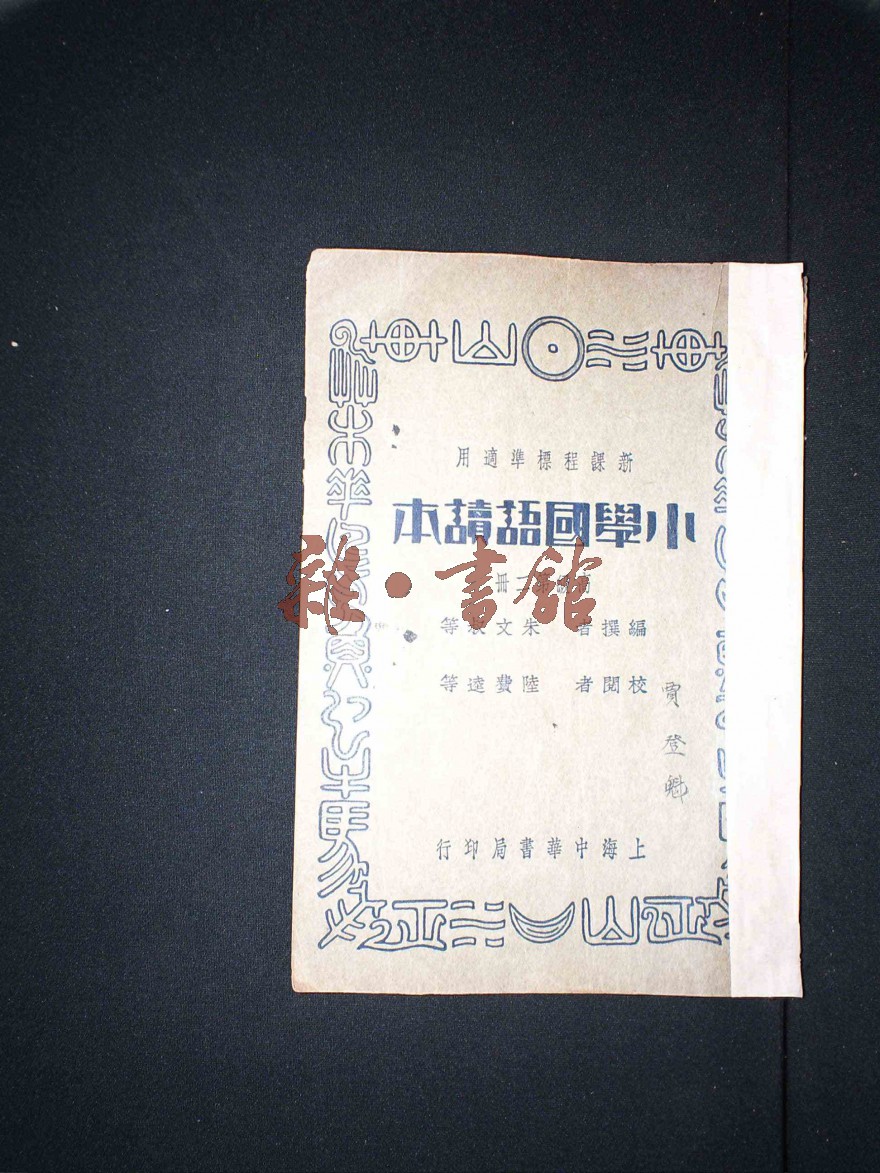 新課程標準適用
小學國語讀本
冊
編撰者 朱文叔等
校閱者 陸費逵等
賈登魁
上海中華書局印行
雜·書館